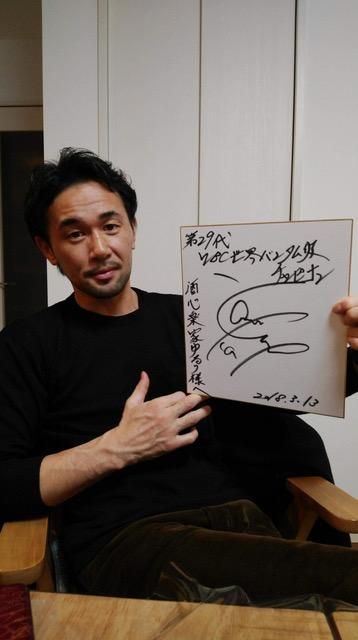 第29代
WBC世界バンタム級
チャンピオン
酒心楽家ゆるり様へ
2018.3.13